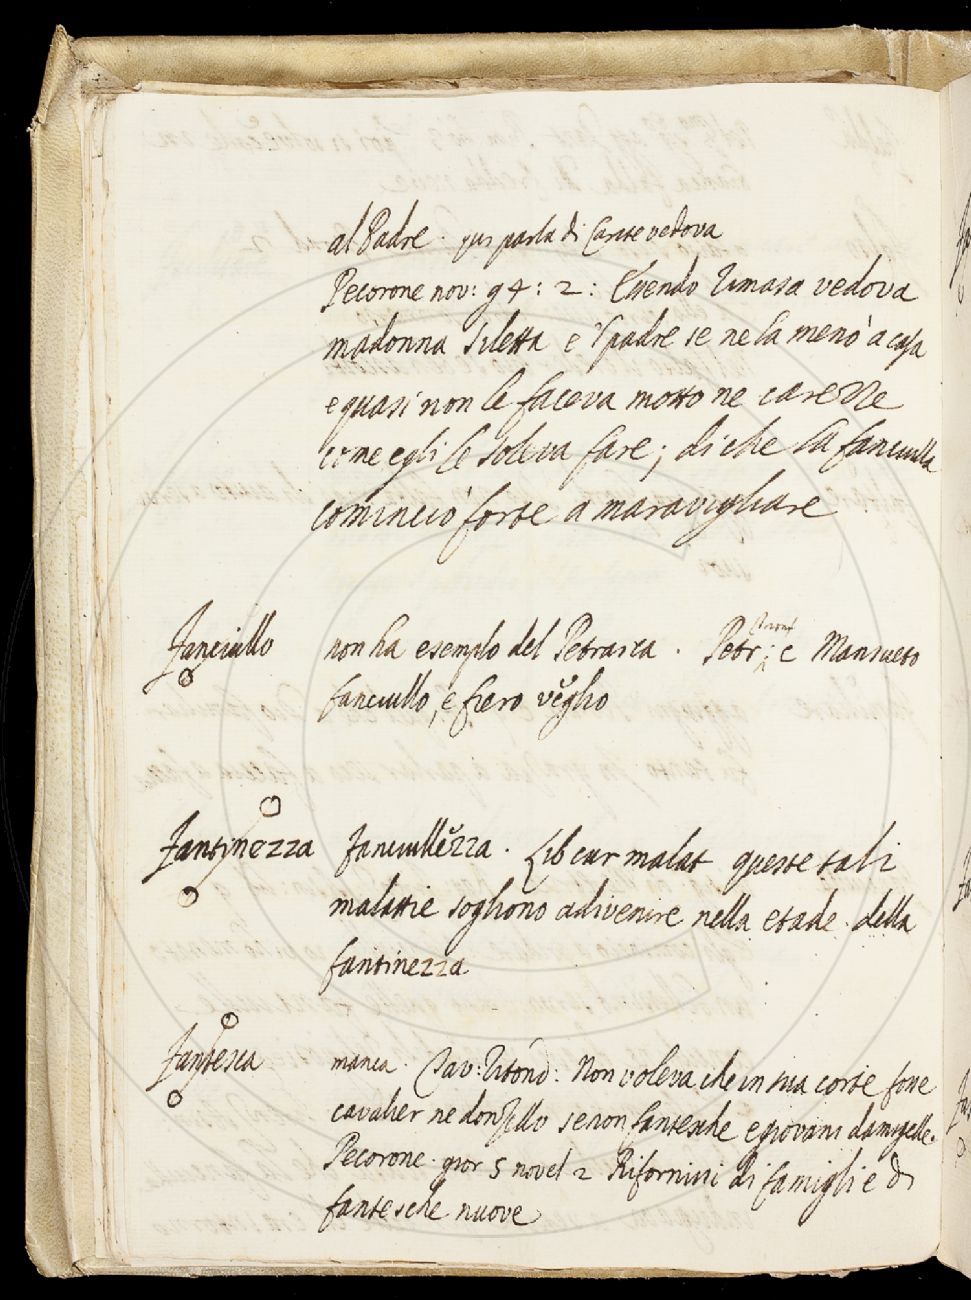 al Padre. qui parla di Carite vedova
Pecorone nov: 94: 2: Essendo rimasa vedova
madonna Siletta e 'l padre se ne la menò a casa
e quasi non le faceva motto ne carezze
come egli le soleva fare; di che la fanciulla
cominciò forte a maravigliare
Fanciullo non ha esempio del Petrarca. Petr: e Mansueto
fanciullo, e fiero veglio
Fantinezza Fanciullezza. Lib cur malat queste tali
malattie sogliono adivenire nella etade della
fantinezza
Fantesca manca. Tav: Ritond: Non voleva che in sua corte fosse
cavalier ne donzello se non fantesche e giovani damigelle.
Pecorone gior 5 novel 2 Rifornissi di famigli e di
fantesche nuove